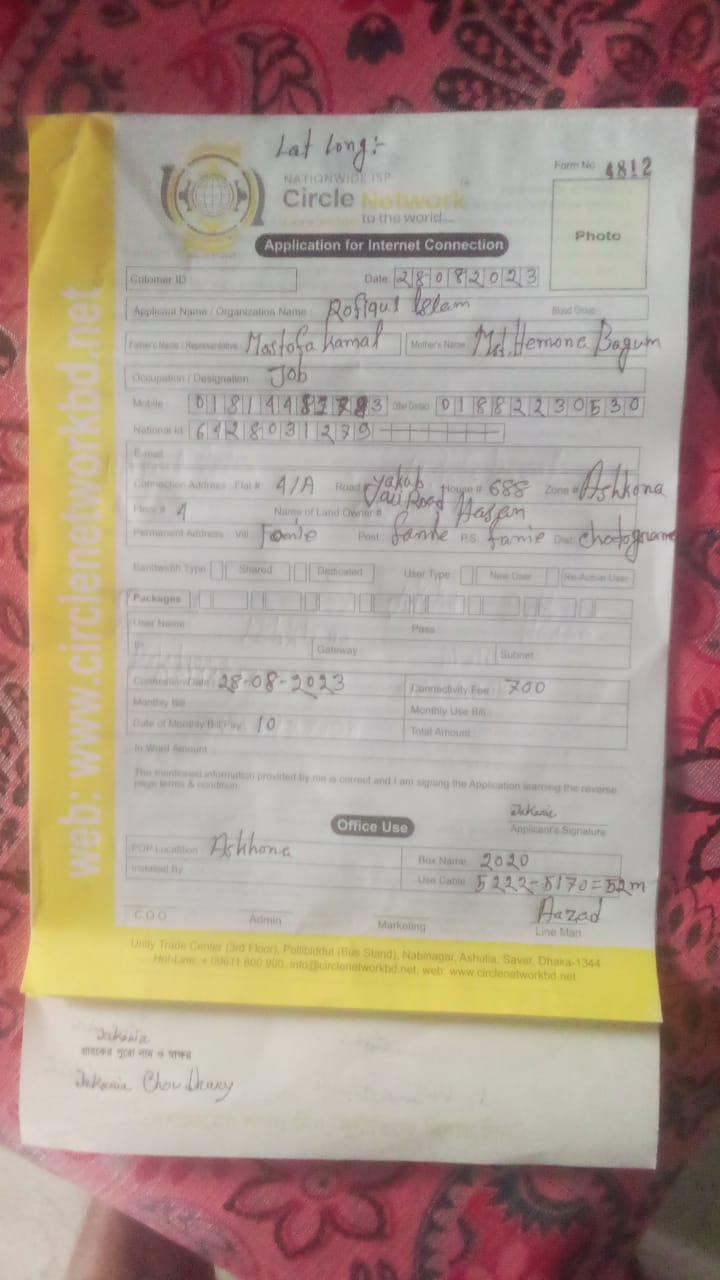 Lat Long:-
NATIONWIDE ISP
Circle Network
to the world....
Form No 4812
Photo
Application for Internet Connection
Cutomer ID
Date: 28082023
Applicant Name / Organization Name : Rofiqul Islam
Blood Group
Father's Name / Representative Mostofa Kamal Mother's Name Mst. Hemona Bagum
Occupation / Designation Job
Mobile Other Contact 01882230530
National Id 6428031279
E-mail
Connection Address : Flat # 4/A Road Yakub Ali Road House # 688 Zone # Ashkona
Floor # 4 Name of Land Owner # Hasan
Permanent Address Vill Post : P.S. Dist:
Bandwidth Type Shared Dedicated User Type : New User Re-Active User
Packages
User Name Pass
IP Gateway Subnet
Connection Date : 28-08-2023 Connectivity Fee : 700
Monthly Bill Monthly Use Bill
Date of Monthly Bill Pay : 10 Total Amount
In Word Amount
The mentioned information provided by me is correct and I am signing the Application learning the reverse
page terms & condition.
Jakaria
Applicant's Signature
Office Use
POP Location Askhona Box Name 2020
Installed By Use Cable 5222-5170=52m
Aazad
C.O.O Admin Marketing Line Man
Unity Trade Center (3rd Floor), Pollibiddut (Bus Stand), Nabinagar, Ashulia, Savar, Dhaka-1344
Hot-Line: + 09611 800 900, info@circlenetworkbd.net, web: www.circlenetworkbd.net
web: www.circlenetworkbd.net
Jakaria
গ্রাহকের পুরো নাম ও স্বাক্ষর
Jakaria Choudhury